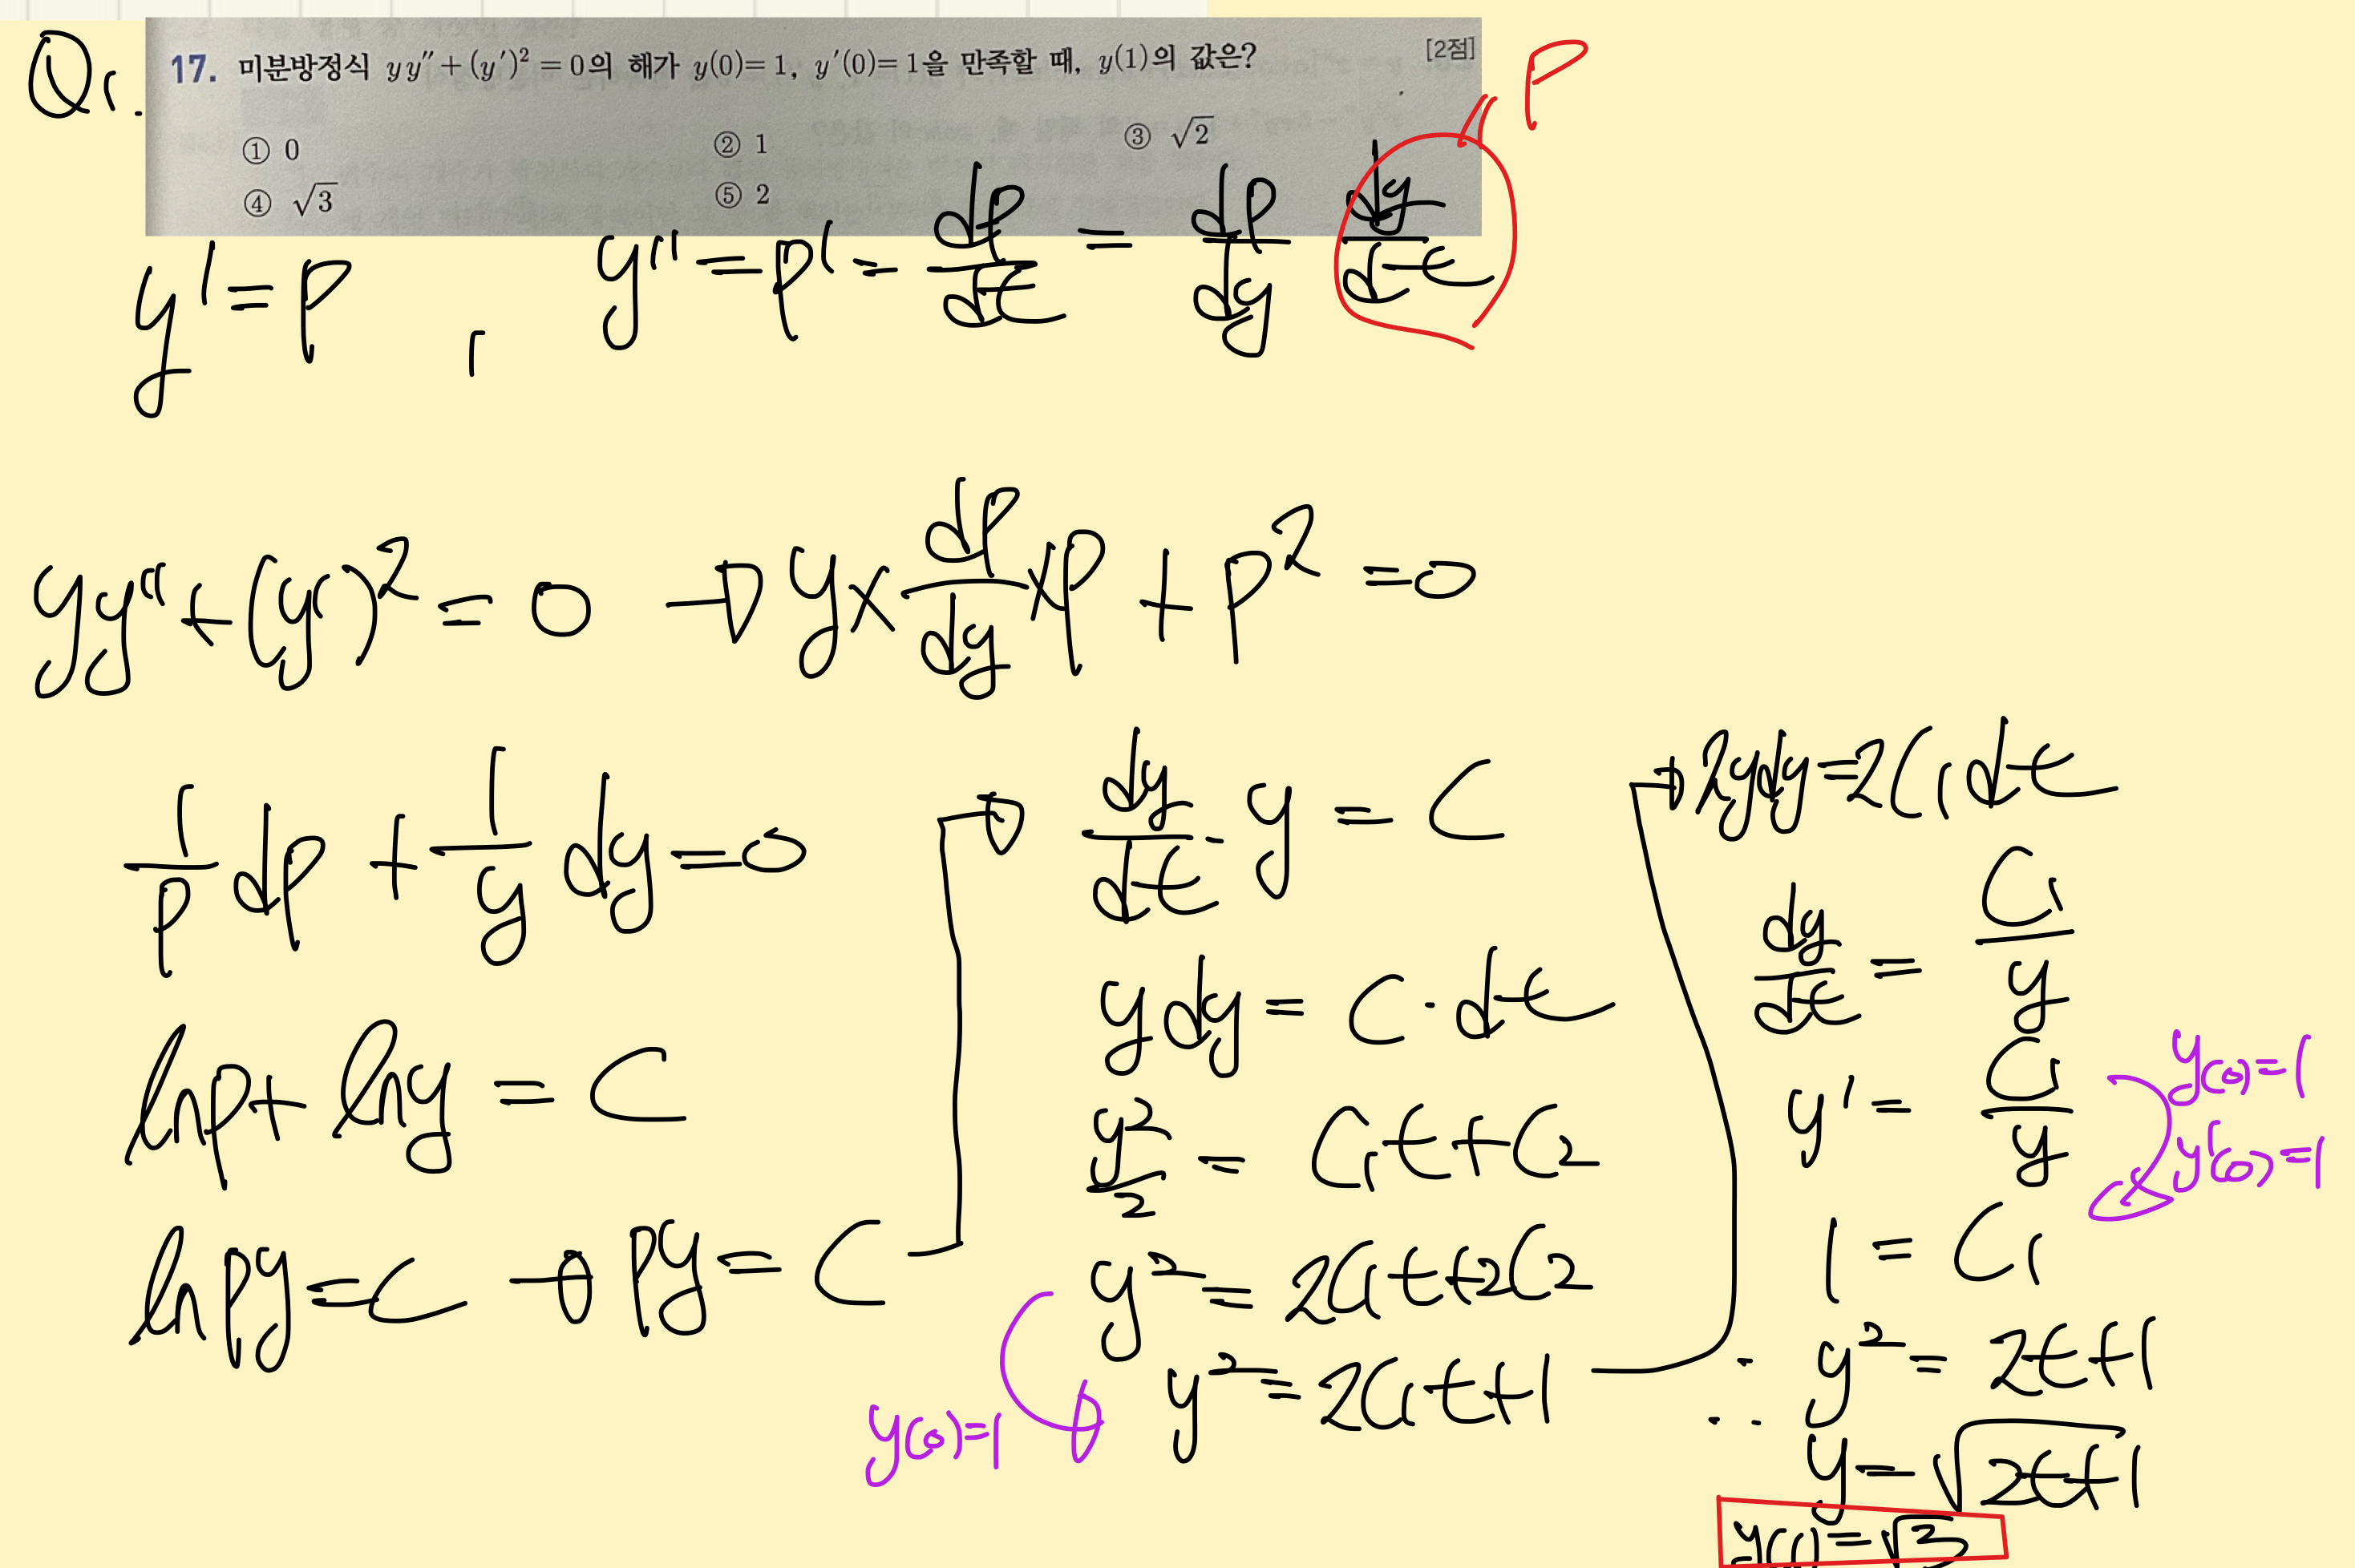 Q1.
17. 미분방정식 yy″+(y′)²=0의 해가 y(0)=1, y′(0)=1을 만족할 때, y(1)의 값은? [2점]
① 0 ② 1 ③ √2
④ √3 ⑤ 2
P
y' = p , y'' = p' = dp/dt = dp/dy dy/dt
yy'' + (y')² = 0 → y × dp/dy × p + p² = 0
1/p dp + 1/y dy = 0
ln p + ln y = C
ln py = C → py = C
dy/dt · y = C
y dy = C · dt
y²/2 = C₁t + C₂
y² = 2C₁t + 2C₂
y(0)=1
y² = 2C₁t + 1
→ 2y dy = 2C₁ dt
dy/dt = C₁/y
y' = C₁/y
y(0)=1
y'(0)=1
1 = C₁
∴ y² = 2t+1
y = √2t+1
y(1) = √3